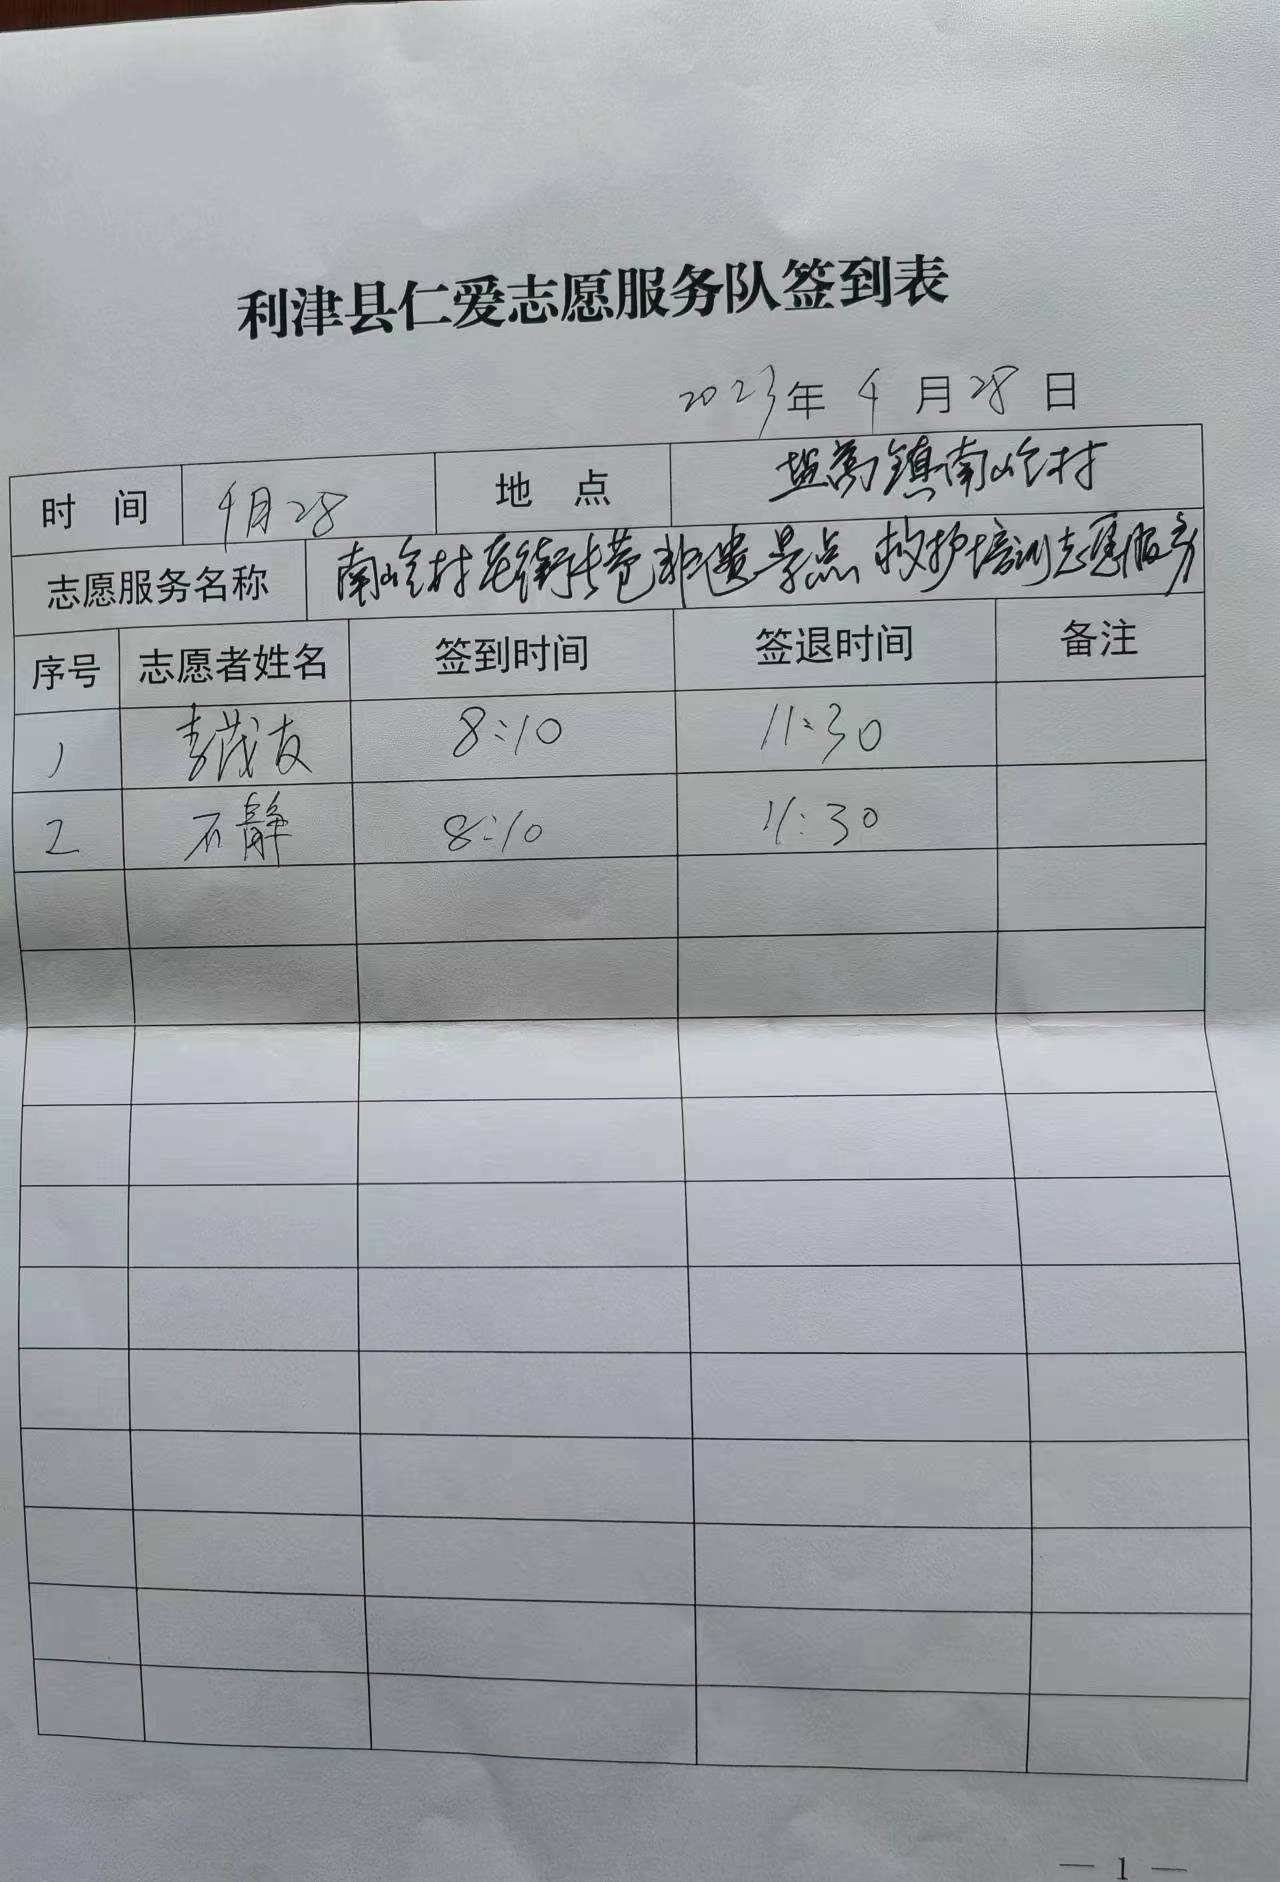 利津县仁爱志愿服务队签到表
2023年 4 月 28 日
时 间 4月28 地 点 盐窝镇南岭村
志愿服务名称 南岭村 非遗景点 救护培训志愿服务
序号 志愿者姓名 签到时间 签退时间 备注
1 李茂友 8:10 11:30
2 石静 8:10 11:30
— 1 —